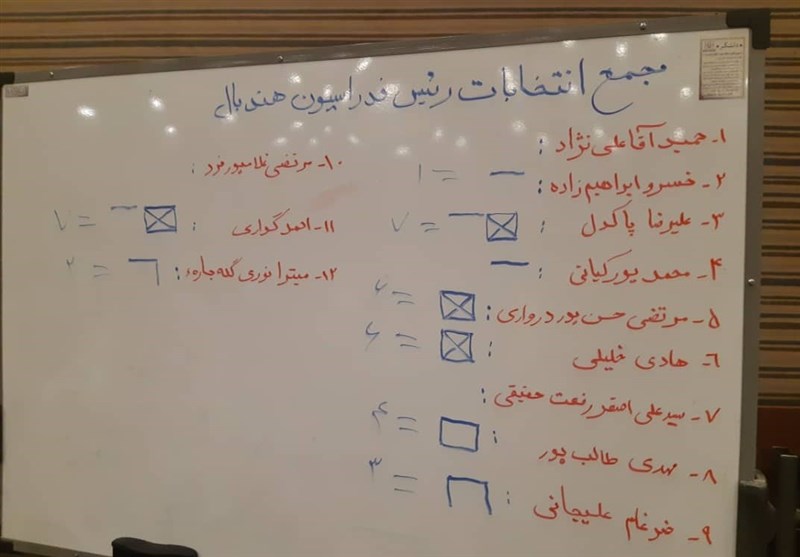 مجمع انتخابات رئیس فدراسیون هندبال
۱- حمید آقاعلی نژاد :
۲- خسرو ابراهیم زاده : = ۱
۳- علیرضا پاکدل : = ۷
۴- محمد پورکیانی :
۵- مرتضی حسن پور درواری : = ۶
۶- هادی خلیلی : = ۶
۷- سید علی اصغر رفعت حقیقی :
۸- مهدی طالب پور : = ۴
۹- ضرغام علیجانی : = ۳
۱۰- مرتضی غلامپور فرد :
۱۱- احمد گواری : = ۷
۱۲- میترا نوری گله جاره : = ۲